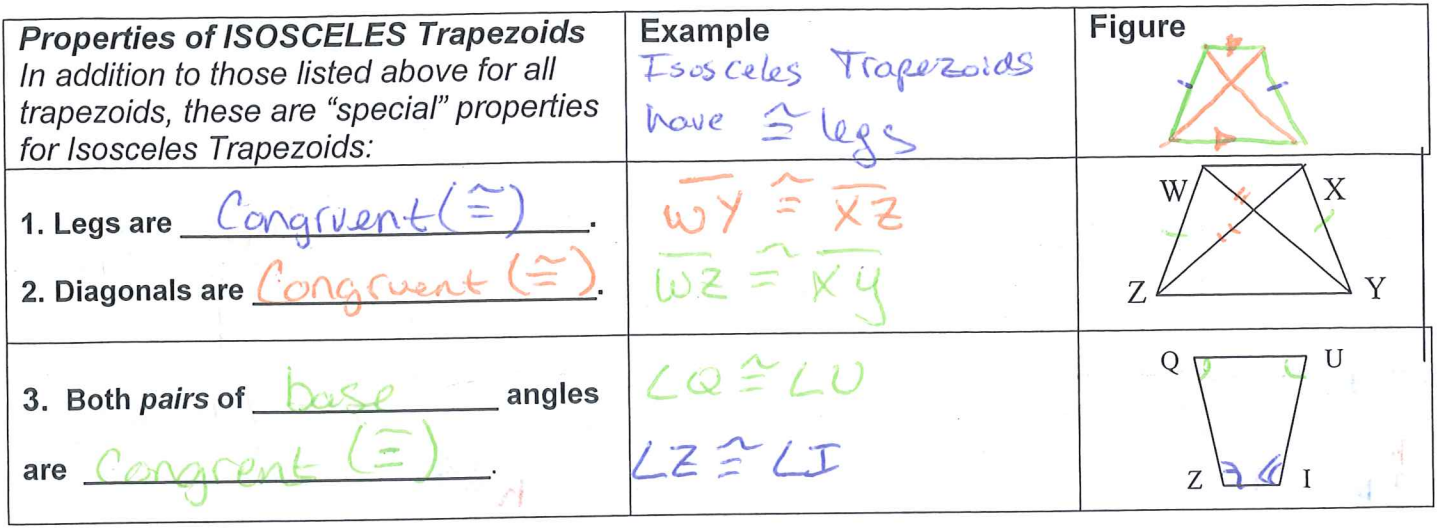 Properties of ISOSCELES Trapezoids
In addition to those listed above for all
trapezoids, these are “special” properties
for Isosceles Trapezoids:
Example
Isosceles Trapezoids
have ≅ legs
Figure
1. Legs are Congruent (≅).
2. Diagonals are Congruent (≅).
WY ≅ XZ
WZ ≅ XY
W X
Z Y
3. Both pairs of base angles
are Congrent (≅).
∠Q ≅ ∠U
∠Z ≅ ∠I
Q U
Z I